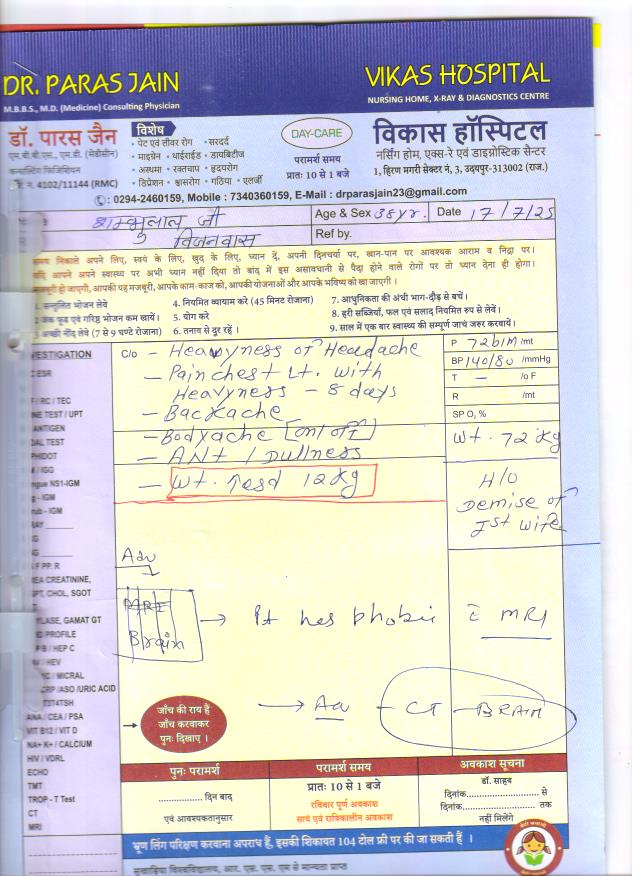 DR. PARAS JAIN
M.B.B.S., M.D. (Medicine) Consulting Physician
VIKAS HOSPITAL
NURSING HOME, X-RAY & DIAGNOSTICS CENTRE
डॉ. पारस जैन
एम.बी.बी.एस., एम.डी. (मेडीसीन)
कन्सल्टिंग फिजिशियन
नं. 4102/11144 (RMC)
विशेष
• पेट एवं लीवर रोग • सरदर्द
• माइग्रेन • थाईराईड • डायबिटीज
• अस्थमा • रक्तचाप • हृदयरोग
• डिप्रेशन • श्वासरोग • गठिया • एलर्जी
DAY-CARE
परामर्श समय
प्रातः 10 से 1 बजे
विकास हॉस्पिटल
नर्सिंग होम, एक्स-रे एवं डाइग्नोस्टिक सेन्टर
1, हिरण मगरी सेक्टर नं. 3, उदयपुर-313002 (राज.)
: 0294-2460159, Mobile : 7340360159, E-Mail : drparasjain23@gmail.com
शम्भुलाल जी
Age & Sex 38yr. Date 17/7/25
विजनवास
Ref by.
समय निकाले अपने लिए, स्वयं के लिए, खुद के लिए, ध्यान दें, अपनी दिनचर्या पर, खान-पान पर आवश्यक आराम व निद्रा पर।
यदि आपने अपने स्वास्थ्य पर अभी ध्यान नहीं दिया तो बाद में इस असावधानी से पैदा होने वाले रोगों पर तो ध्यान देना ही होगा।
हो जाएगी, आपकी यह मजबूरी, आपके काम-काज को, आपकी योजनाओं और आपके भविष्य को खा जाएगी।
1. सन्तुलित भोजन लेवे 4. नियमित व्यायाम करे (45 मिनट रोजाना) 7. आधुनिकता की अंधी भाग-दौड़ से बचें।
2. जंक फूड एवं गरिष्ठ भोजन कम खायें। 5. योग करे 8. हरी सब्जियाँ, फल एवं सलाद नियमित रुप से लेवें।
3. अच्छी नींद लेवे (7 से 9 घण्टे रोजाना) 6. तनाव से दूर रहें। 9. साल में एक बार स्वास्थ्य की सम्पूर्ण जाचं जरुर करवायें।
INVESTIGATION
ESR
/ RC / TEC
TEST / UPT
ANTIGEN
TEST
/ IGG
NS1-IGM
- IGM
- IGM
PP. R
CREATININE,
CHOL, SGOT
GAMAT GT
PROFILE
/ HEP C
/ HEV
/ MICRAL
CRP /ASO /URIC ACID
T3T4TSH
ANA / CEA / PSA
VIT B12 / VIT D
NA+ K+ / CALCIUM
HIV / VDRL
ECHO
TMT
TROP - T Test
CT
MRI
C/o - Heavyness of Headache
- Pain chest Lt. with
Heavyness - 8 days
- Backache
- Bodyache [on/off]
- ANt / Dullness
- Wt. 12 kg
P 72b/M/mt
BP 140/80/mmHg
T — /o F
R /mt
SP O2 %
Wt. 72 kg
H/O
Demise of
Ist wife
Adv
MRI
Brain
→ Pt has phobic c̄ MRI
→ Adv - CT - BRAIN
जाँच की राय है
जाँच करवाकर
पुनः दिखाए।
पुनः परामर्श
.................. दिन बाद
एवं आवश्यकतानुसार
परामर्श समय
प्रातः 10 से 1 बजे
रविवार पूर्ण अवकाश
सायं एवं रात्रिकालीन अवकाश
अवकाश सूचना
डॉ. साहब
दिनांक........................ से
दिनांक........................ तक
नहीं मिलेंगे
भ्रूण लिंग परिक्षण करवाना अपराध हैं, इसकी शिकायत 104 टोल फ्री पर की जा सकती हैं ।
सुखाड़िया विश्वविद्यालय, आर. एस. एस. एम से मान्यता प्राप्त